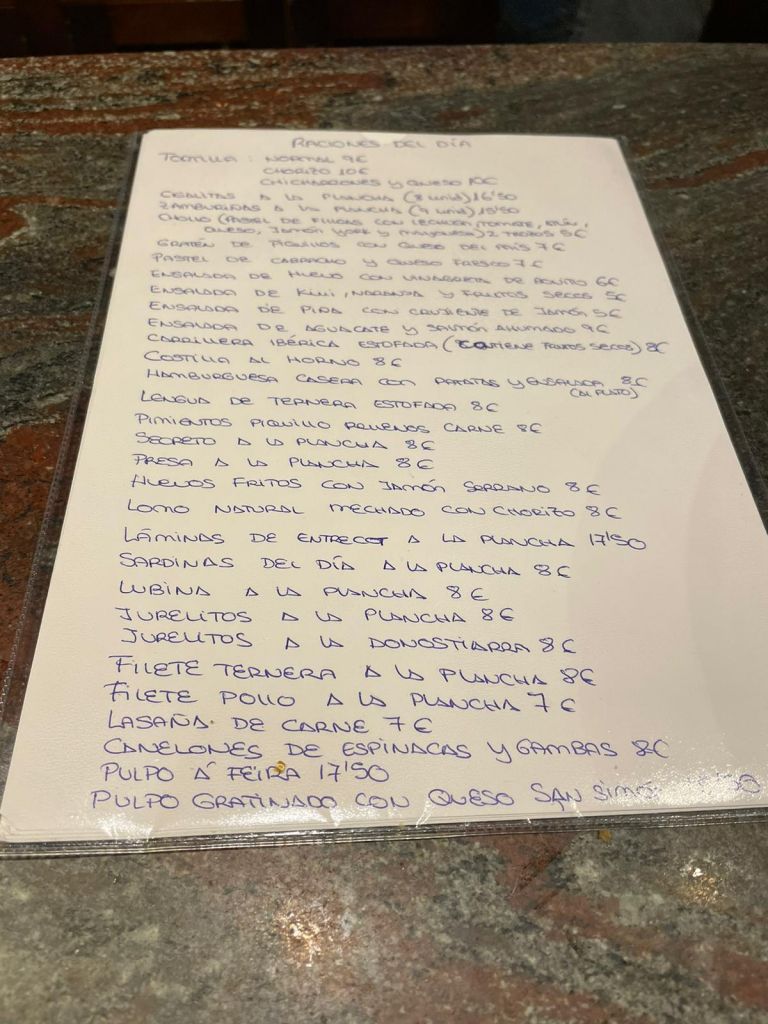 RACIONES DEL DÍA
TORTILLA : NORMAL 9€
CHORIZO 10€
CHICHARRONES Y QUESO 10€
CIGALITAS A LA PLANCHA (8 unid) 16'50
ZAMBURIÑAS A LA PLANCHA (9 unid) 15'50
CHOLLO (PASTEL DE FILLOAS CON LECHUGA, TOMATE,
QUESO, JAMÓN YORK Y MAYONESA) 2 TROZOS 5€
GRATÉN DE PIQUILLOS CON QUESO DEL PAÍS 7€
PASTEL DE CABRACHO Y QUESO FRESCO 7€
ENSALADA DE HUEVO CON VINAGRETA DE BONITO 6€
ENSALADA DE KIWI, NARANJA Y FRUTOS SECOS 5€
ENSALADA DE PIÑA CON CRUJIENTE DE JAMÓN 5€
ENSALADA DE AGUACATE Y SALMÓN AHUMADO 9€
CARRILLERA IBÉRICA ESTOFADA (CONTIENE FRUTOS SECOS) 8€
COSTILLA AL HORNO 8€
HAMBURGUESA CASERA CON PATATAS Y ENSALADA 8€
(AL PLATO)
LENGUA DE TERNERA ESTOFADA 8€
PIMIENTOS PIQUILLO RELLENOS CARNE 8€
SECRETO A LA PLANCHA 8€
PRESA A LA PLANCHA 8€
HUEVOS FRITOS CON JAMÓN SERRANO 8€
LOMO NATURAL MECHADO CON CHORIZO 8€
LÁMINAS DE ENTRECOT A LA PLANCHA 17'50
SARDINAS DEL DÍA A LA PLANCHA 8€
LUBINA A LA PLANCHA 8€
JURELITOS A LA PLANCHA 8€
JURELITOS A LA DONOSTIARRA 8€
FILETE TERNERA A LA PLANCHA 8€
FILETE POLLO A LA PLANCHA 7€
LASAÑA DE CARNE 7€
CANELONES DE ESPINACAS Y GAMBAS 8€
PULPO A´ FEIRA 17'50
PULPO GRATINADO CON QUESO SAN SIMÓN